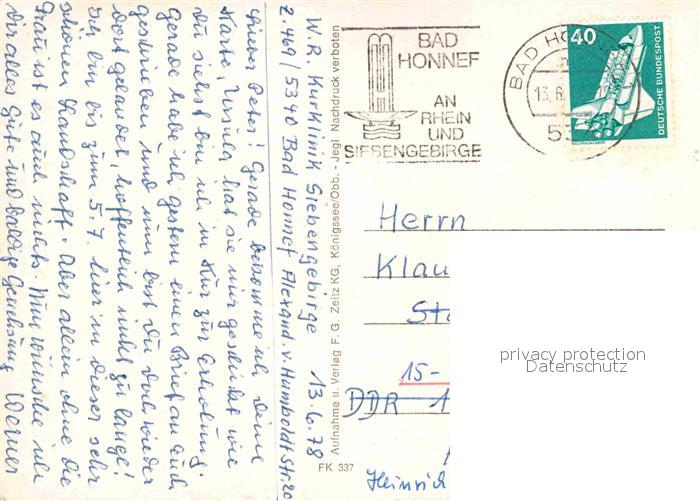 W. R. Kurklinik Siebengebirge 13.6.78
Z. 461 / 5340 Bad Honnef Alexand. v. Humboldt Str. 20
Lieber Peter! Gerade bekomme ich Deine
Karte, Ursula hat sie mir geschickt wie
Du siehst bin ich in Kur zur Erholung.
Gerade habe ich gestern einen Brief an Euch
geschrieben und nun bist Du doch wieder
dort gelandet, hoffentlich nicht zu lange!
Ich bin bis zum 5.7. hier in dieser sehr
schönen Landschaft. Aber allein ohne die
Frau ist es auch nichts. Nun wünsche ich
Dir alles Gute und baldige Genesung Werner
Aufnahme u. Verlag F. G. Zeitz KG, Königssee/Obb. - Jegl. Nachdruck verboten
FK 337
BAD
HONNEF
AN
RHEIN
UND
SIEBENGEBIRGE
BAD HO
13.6.
53
40
DEUTSCHE BUNDESPOST
WELTRAUMLABOR
Herrn
Klau
St
15-
DDR 1
Heinrich
privacy protection
Datenschutz